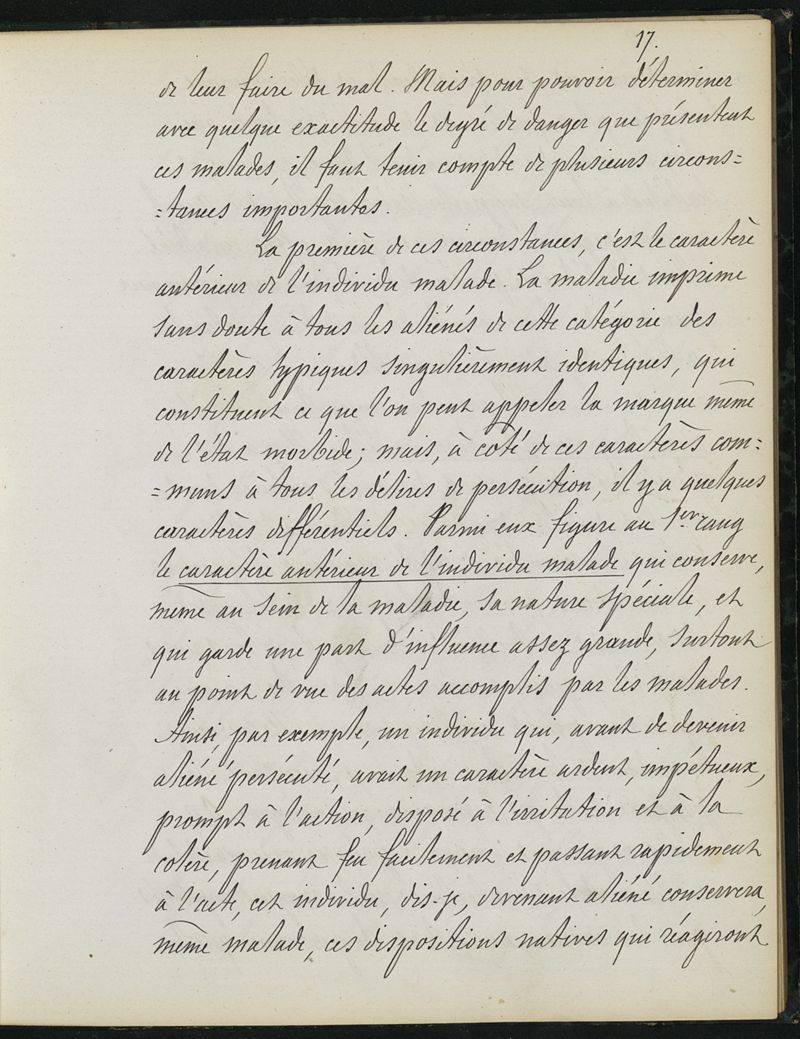 17.
de leur faire du mal. Mais pour pouvoir déterminer
avec quelque exactitude le degré de danger que présentent
ces malades, il faut tenir compte de plusieurs circons=
=tances importantes.
La première de ces circonstances, c'est le caractère
antérieur de l'individu malade. La maladie imprime
sans doute à tous les aliénés de cette catégorie des
caractères typiques singulièrement identiques, qui
constituent ce que l'on peut appeler la marque même
de l'état morbide; mais, à coté de ces caractères com=
=muns à tous les délires de persécution, il y a quelques
caractères différentiels. Parmi eux figure au 1er rang
le caractère antérieur de l'individu malade qui conserve,
même au sein de la maladie, sa nature spéciale, et
qui garde une part d'influence assez grande, surtout
au point de vue des actes accomplis par les malades.
Ainsi, par exemple, un individu qui, avant de devenir
aliéné persécuté, avait un caractère ardent, impétueux,
prompt à l'action, disposé à l'irritation et à la
colère, prenant feu facilement et passant rapidement
à l'acte, cet individu, dis-je, devenant aliéné conservera,
même malade, ces dispositions natives qui réagiront